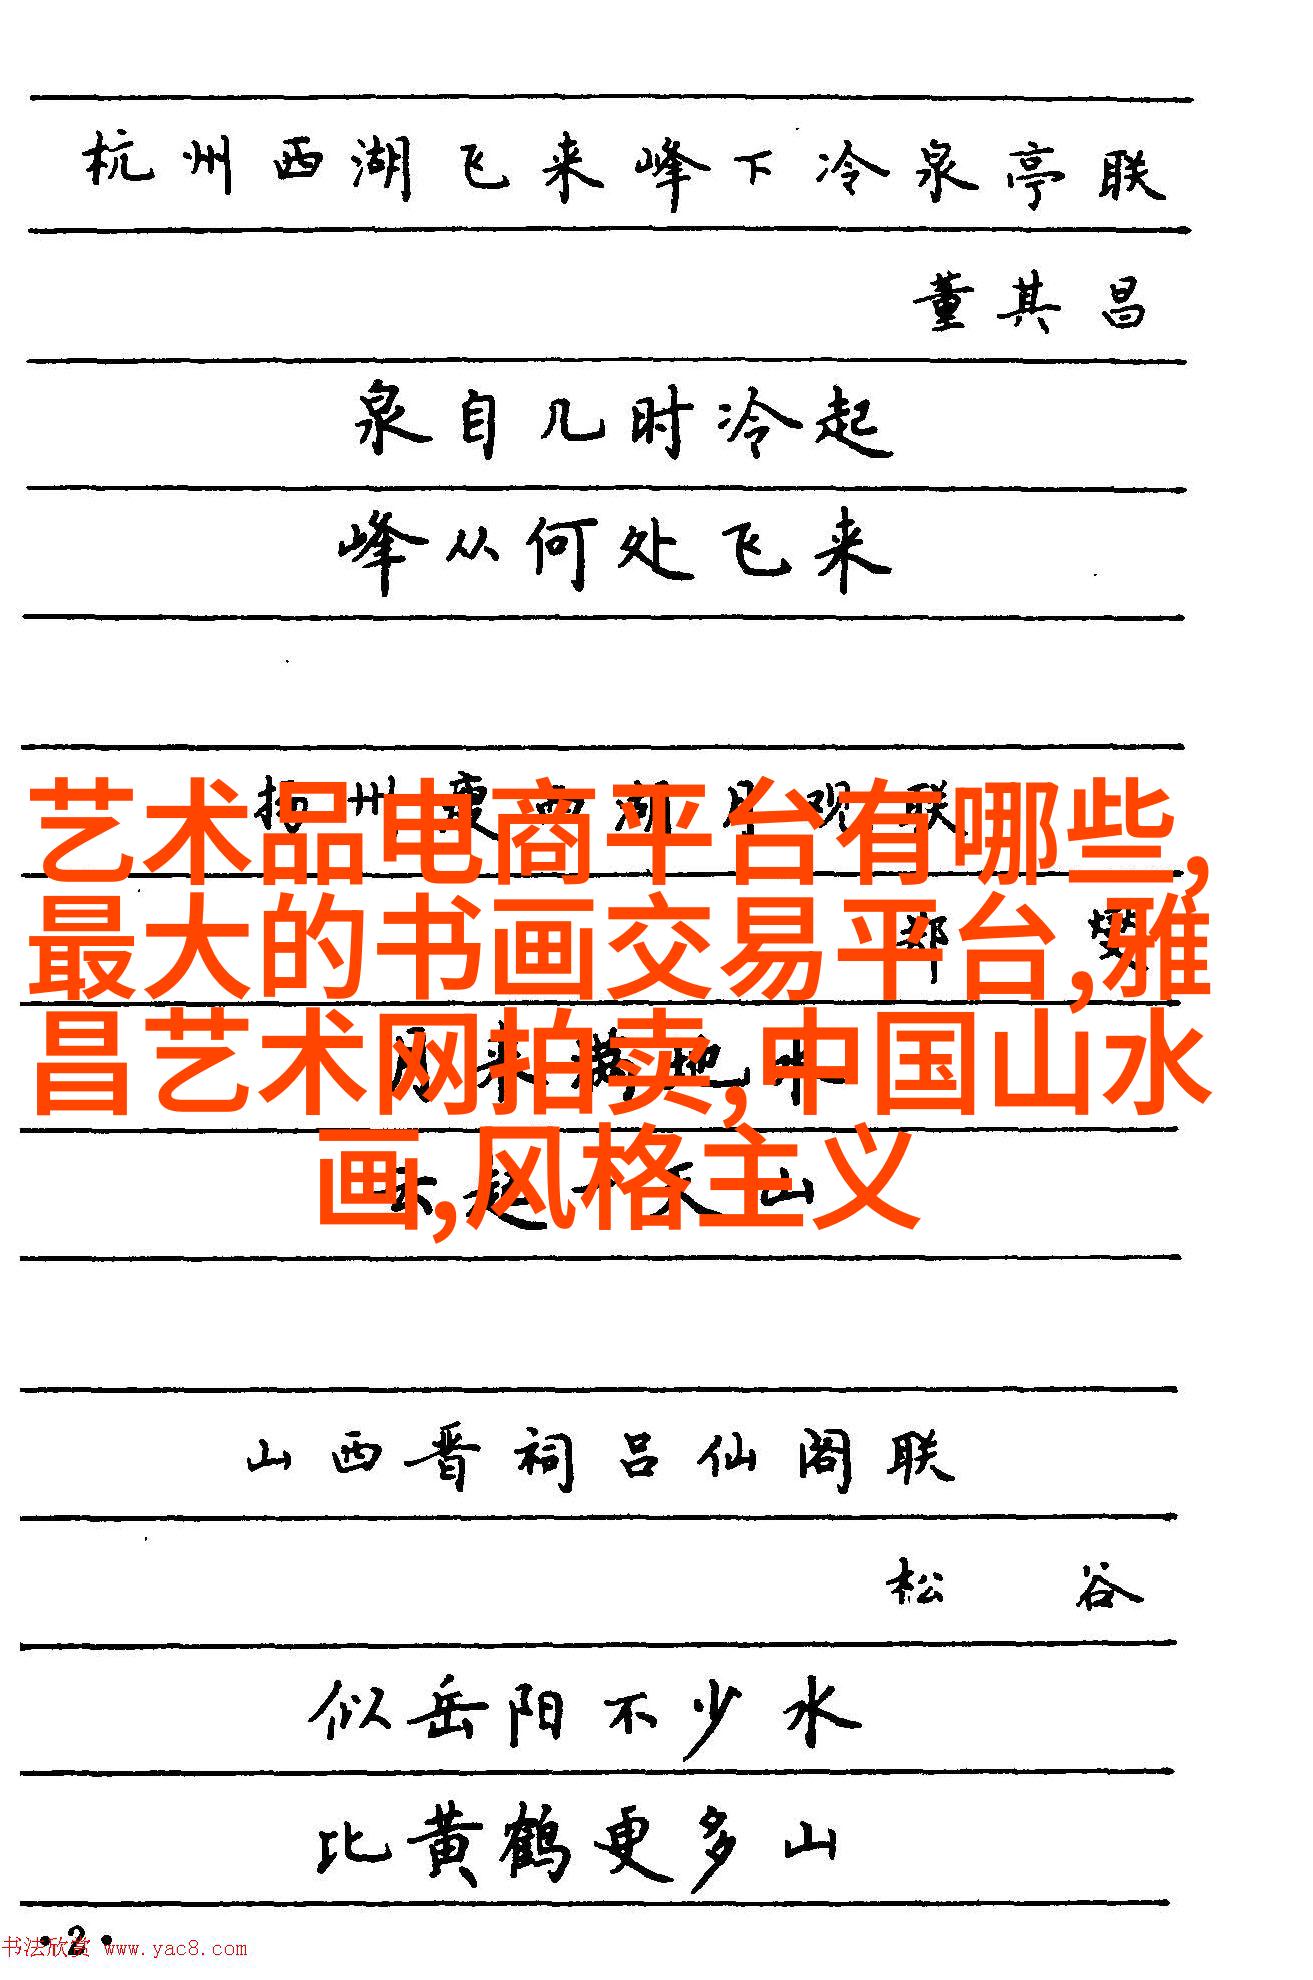 杭州西湖飞来峰下冷泉亭联
董其昌
泉自几时冷起
峰从何处飞来
扬州瘦西湖月观联
艺术品电商平台有哪些,
郑燮
最大的书画交易平台,雅
月来满地水
昌艺术网拍卖,中国山水
云起一天山
画,风格主义
山西晋祠吕仙阁联
松谷
似岳阳不少水
比黄鹤更多山
·2·
书法欣赏 www.yac8.com